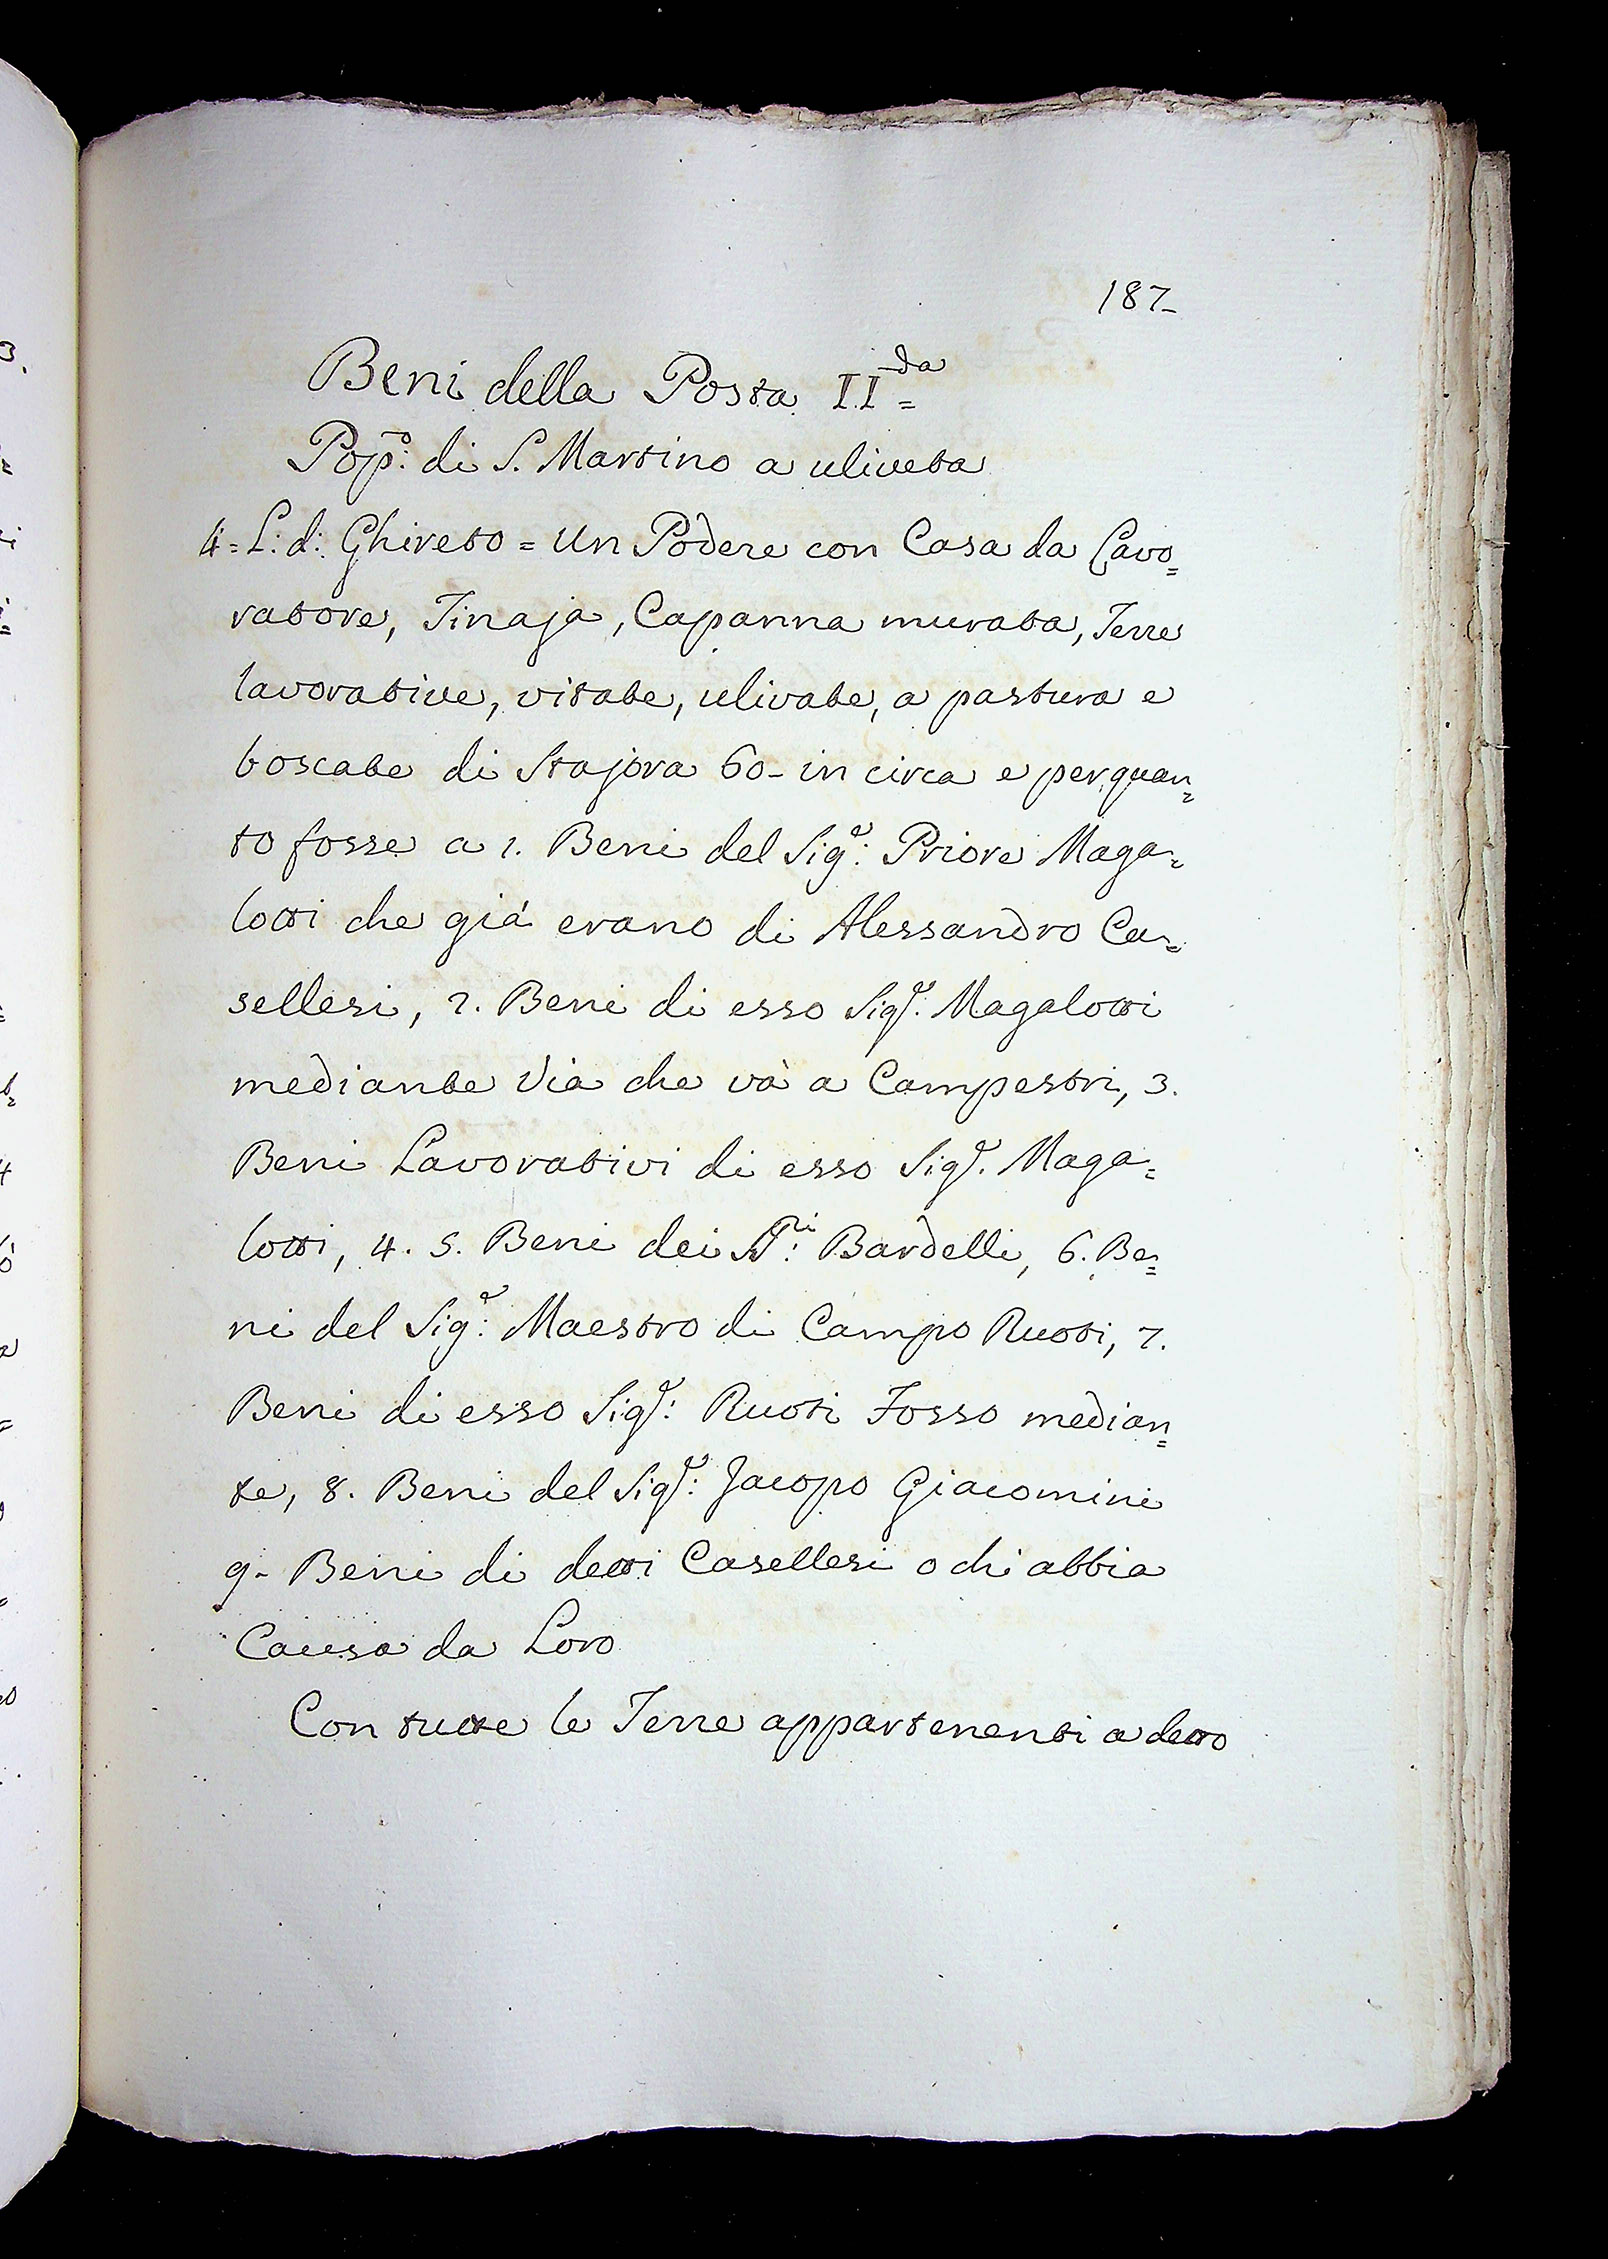 187-
Beni della Posta II.da=
Popo: di S. Martino a uliveta
4= L: d: Ghireto = Un Podere con Casa da Lavo=
ratore, Tinaja, Capanna murata, Terre
lavorative, vitate, ulivate, a pastura e
boscate di Stajora 60- in circa e per quan=
to fosse a 1. Beni del Sigr: Priore Maga=
lotti che già erano di Alessandro Ca=
sellesi, 2. Beni di esso Sigr: Magalotti
mediante Via che và a Campestri, 3.
Beni Lavorativi di esso Sigr. Maga=
lotti, 4. 5. Beni dei SSri: Bardelli, 6. Be=
ni del Sigr: Maestro di Campo Ruoti, 7.
Beni di esso Sigr: Ruoti Fosso median=
te, 8. Beni del Sigr: Jacopo Giacomini
9- Beni di detti Casellesi o chi abbia
Causa da Loro
Con tutte le Terre appartenenti a detto